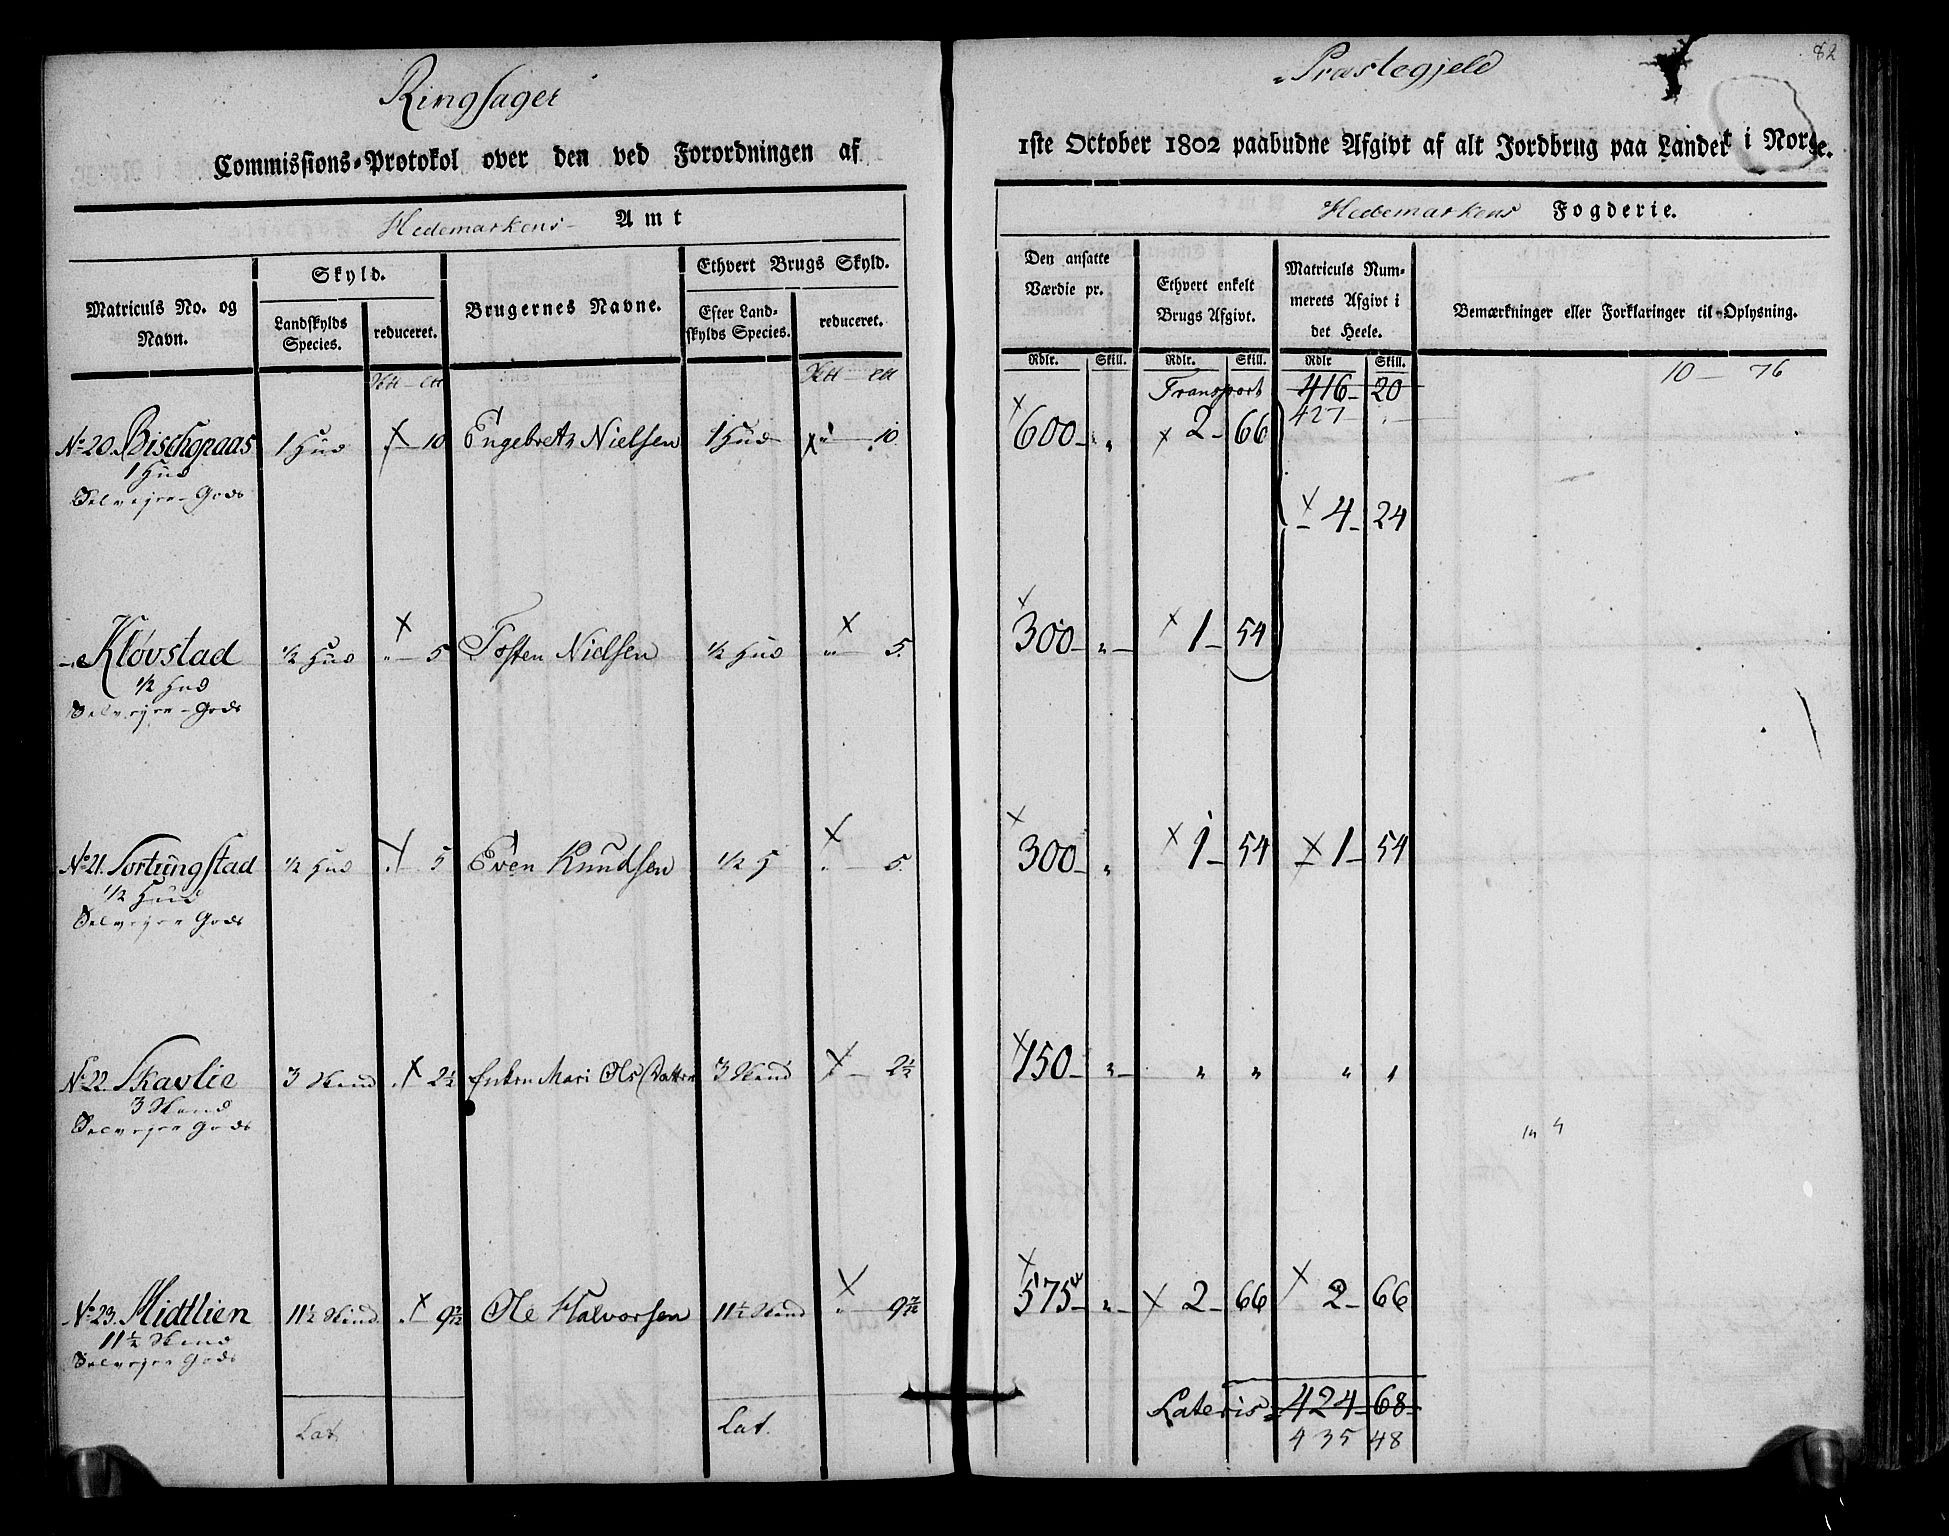 Ringsager
Commissions-Protokol over den ved Forordningen af
Hedemarkens Amt
Matriculs No. og Navn.
Skyld.
Landskylds Species.
reduceret.
Brugernes Navne.
Ethvert Brugs Skyld.
Efter Landskylds Species.
reduceret.
No 20. Bischopaas 1 Hud 10 Engebret Nielsen 1 Hud 10.
1 Hud
Selvejer-Gods
Kløvstad 1/2 Hud " 5 Tosten Nielsen 1/2 Hud " 5.
1/2 Hud
Selvejer-Gods
No 21. Tortungstad 1/2 Hud 5 Even Knudsen 1/2 5.
1/2 Hud
Selvejer Gods
No 22. Skavlie 3 Skind 2 1/2 Enken Mari Ols Datter 3 Skind 2 1/2
3 Skind
Selvejer Gods
No 23. Midtlien 11 1/2 Skind 9 7/12 Ole Halvorsen 11 1/2 Skind 9 7/12
11 1/2 Skind
Selvejer Gods
Lat. Lat.
82
Præstegjeld
1ste October 1802 paabudne Afgivt af alt Jordbrug paa Landet i Norge.
Hedemarkens Fogderie.
Den ansatte Værdie pr.
Ethvert enkelt Brugs Afgivt.
Matriculs Nummerets Afgivt i det Heele.
Bemærkninger eller Forklaringer til Oplysning.
Rdlr. Skill. Rdlr. Skill. Rdlr Skill.
Transport 416 20 10 — 76
427
600 " 2 66
4 24
300 " 1 54
300 " 1 54 1 54
150 " " " " "
575 " 2 66 2 66
Lateris 424 68
435 48